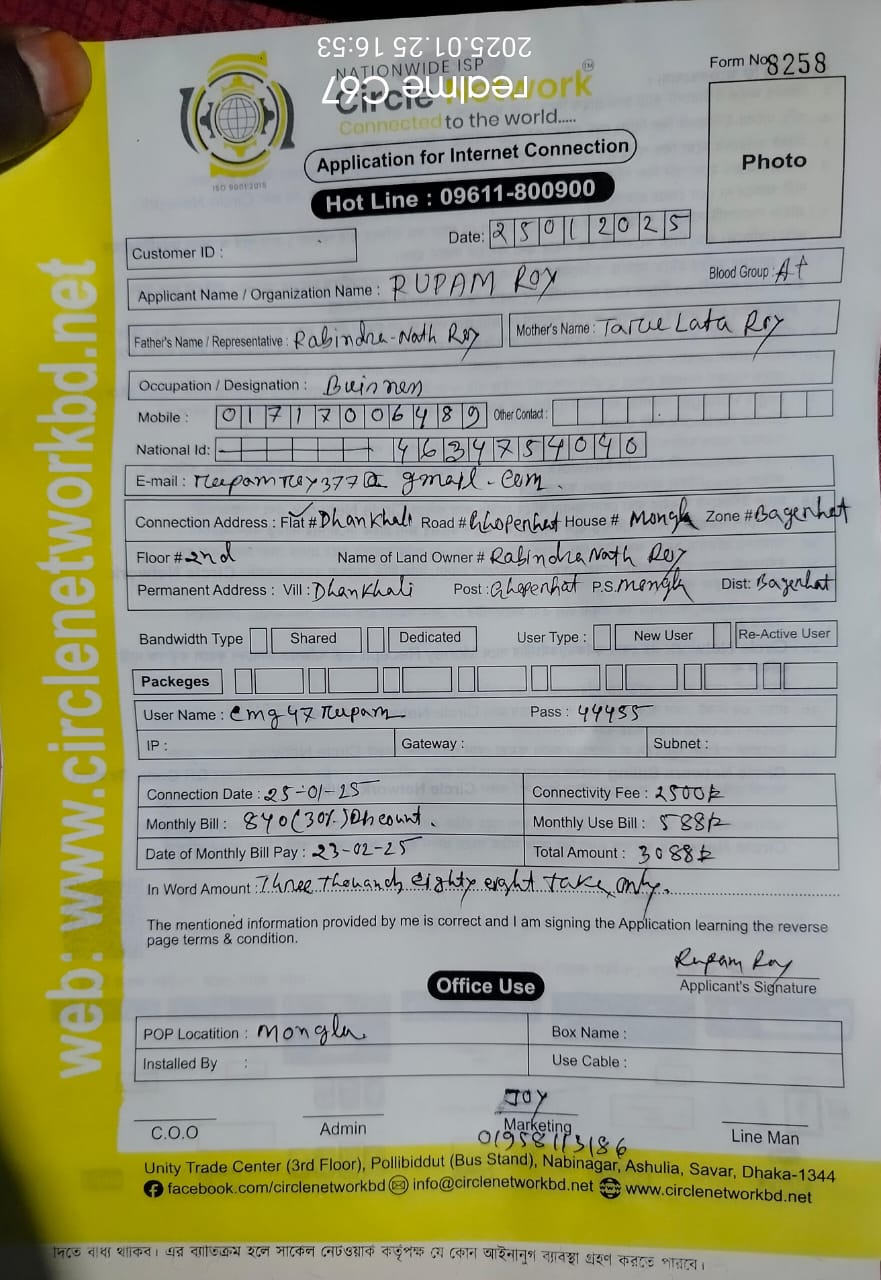 2025.01.25 16:53
realme C67
NATIONWIDE ISP
Circle Network
Connected to the world.....
ISO 9001:2015
Form No 8258
Photo
Application for Internet Connection
Hot Line : 09611-800900
Date: 25012025
Customer ID :
Applicant Name / Organization Name : RUPAM ROY Blood Group : A+
Father's Name / Representative : Rabindra-Nath Roy Mother's Name : Tarue Lata Roy
Occupation / Designation : Buisness
Mobile : 01717006489 Other Contact :
National Id: 4634754040
E-mail : rupamroy377@gmail.com.
Connection Address : Flat # Dhankhali Road # Ghopenhat House # Mongla Zone # Bagerhat
Floor # 2nd Name of Land Owner # Rabindra Nath Roy
Permanent Address : Vill : Dhankhali Post : Ghopenhat P.S. Mongla Dist: Bagerhat
Bandwidth Type Shared Dedicated User Type : New User Re-Active User
Packeges
User Name : cmg47rupam Pass : 44455
IP : Gateway : Subnet :
Connection Date : 25-01-25 Connectivity Fee : 2500tk
Monthly Bill : 840(30%)Discount. Monthly Use Bill : 588tk
Date of Monthly Bill Pay : 23-02-25 Total Amount : 3088tk
In Word Amount : Three Thousands eighty eight taka only.
The mentioned information provided by me is correct and I am signing the Application learning the reverse
page terms & condition.
Rupam Roy
Applicant's Signature
Office Use
POP Locatition : Mongla Box Name :
Installed By : Use Cable :
JOY
C.O.O Admin Marketing Line Man
01958113186
Unity Trade Center (3rd Floor), Pollibiddut (Bus Stand), Nabinagar, Ashulia, Savar, Dhaka-1344
facebook.com/circlenetworkbd info@circlenetworkbd.net www.circlenetworkbd.net
web: www.circlenetworkbd.net
দিতে বাধ্য থাকিব। এর ব্যতিক্রম হলে সার্কেল নেটওয়ার্ক কর্তৃপক্ষ যে কোন আইনানুগ ব্যবস্থা গ্রহণ করতে পারবে।